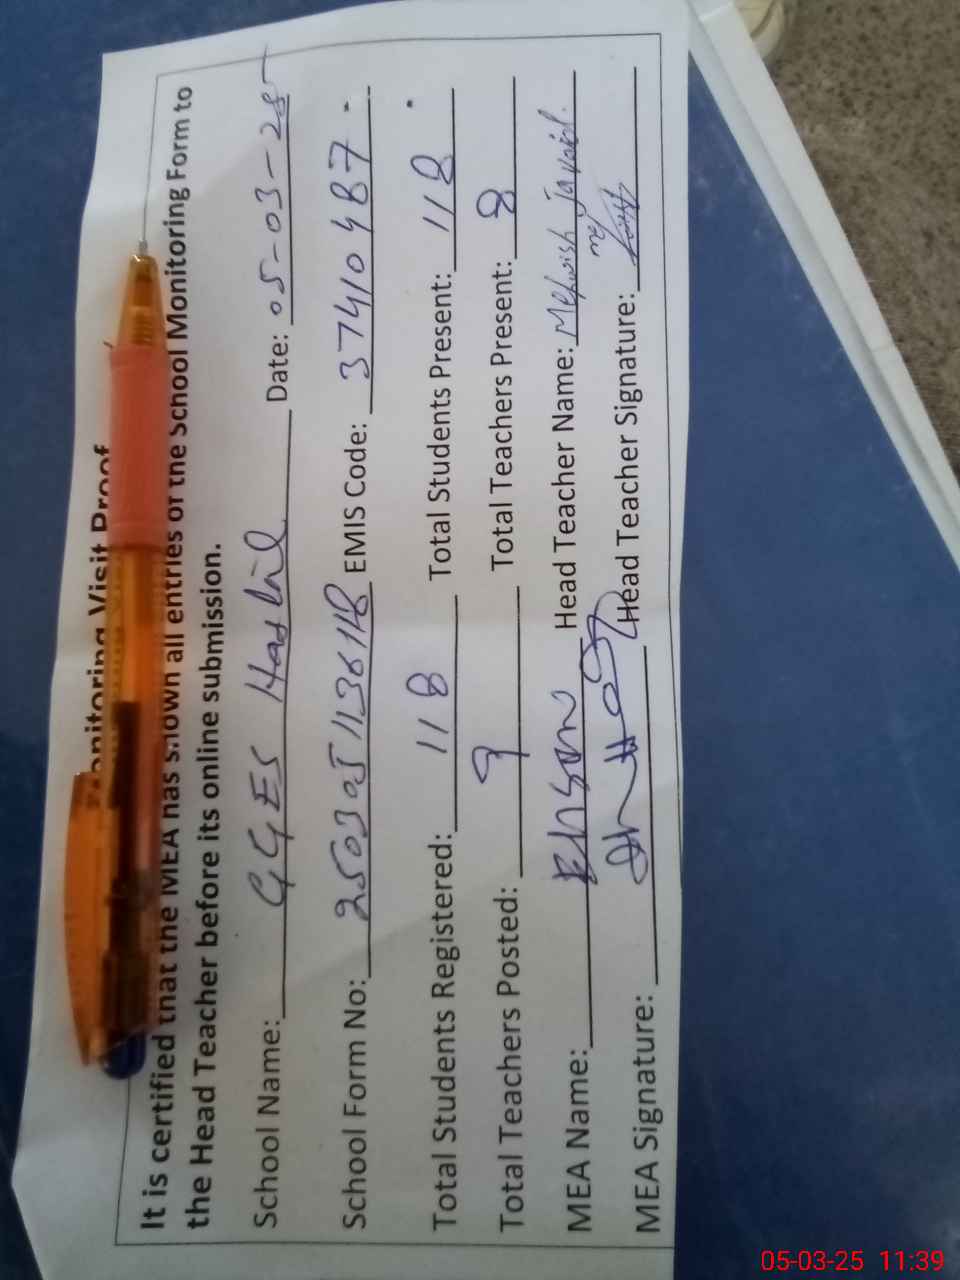 Monitoring Visit Proof
It is certified that the MEA has shown all entries of the School Monitoring Form to
the Head Teacher before its online submission.
School Name: GGES Date: 05-03-25
School Form No: EMIS Code: 37410487
Total Students Registered: 118 Total Students Present: 118
Total Teachers Posted: 9 Total Teachers Present: 8
MEA Name: Ehsan Head Teacher Name: Mehwish javaid.
MEA Signature: Head Teacher Signature:
05-03-25 11:39